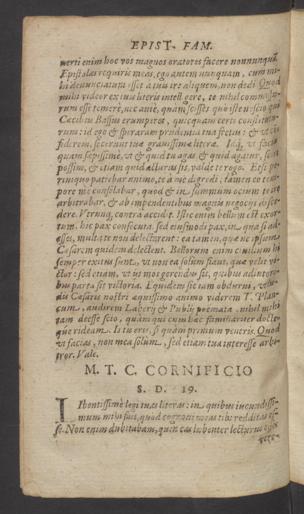 EPIST. FAM.
verti enim hoc vos magnos oratores facere nonnunquā.
Epistolas requiris meas, ego autem nunquam, cum mi-
hi denunciatum esset a tuis ire aliquem, non dedi. Quod
mihi videor ex tuis literis intelligere, te nihil commissu-
rum esse temere, nec ante, quam scisses quo iste nescio quis
Cæcilius Bassus erumperet, quicquam certi constitu-
rum: id ego & speraram prudentia tua fretus: & ut
fiderem, fecerunt tuæ gratissimæ literæ. Idq; vt facias
quam sæpissime, vt & quid tu agas & quid agatur, scire
possim, & etiam quid acturus sis, valde te rogo. Etsi pe-
riniquo patiebar animo, te à me digredi: tamen eo tem-
pore me consolabar, quod & in summum ocium te ire
arbitrabar, & ab impendentibus magnis negocijs disce-
dere. Verunq; contra accidit. Istic enim bellum est exor-
tum. hic pax consecuta. sed eiusmodi pax, in qua si ad-
esses, multa te non delectarent: ea tamen, quæ ne ipsum
Cæsarem quidem delectent. Bellorum enim ciuilium hi
semper exitus sunt, vt non ea solum fiant, quæ velit vi-
ctor: sed etiam, vt ijs mos gerendus sit, quibus adiutori-
bus parta sit victoria. Equidem sic iam obdurui, vt lu-
dis Cæsaris nostri æquissimo animo viderem T. Plan-
cum, audirem Laberij & Publij poemata. nihil mihi
tam deesse scito, quàm qui cum hæc familiariter docte-
que rideam. Is tu eris, si quàm primum veneris. Quod
vt facias, non mea solum, sed etiam tua interesse arbi-
tror. Vale.
M. T. C. CORNIFICIO
S. D. 19.
Libentissimè legi tuas literas: in quibus iucundissi-
mum mihi fuit, quod cognoui meas tibi redditas es-
se. Non enim dubitabam, quin eas libenter lecturus